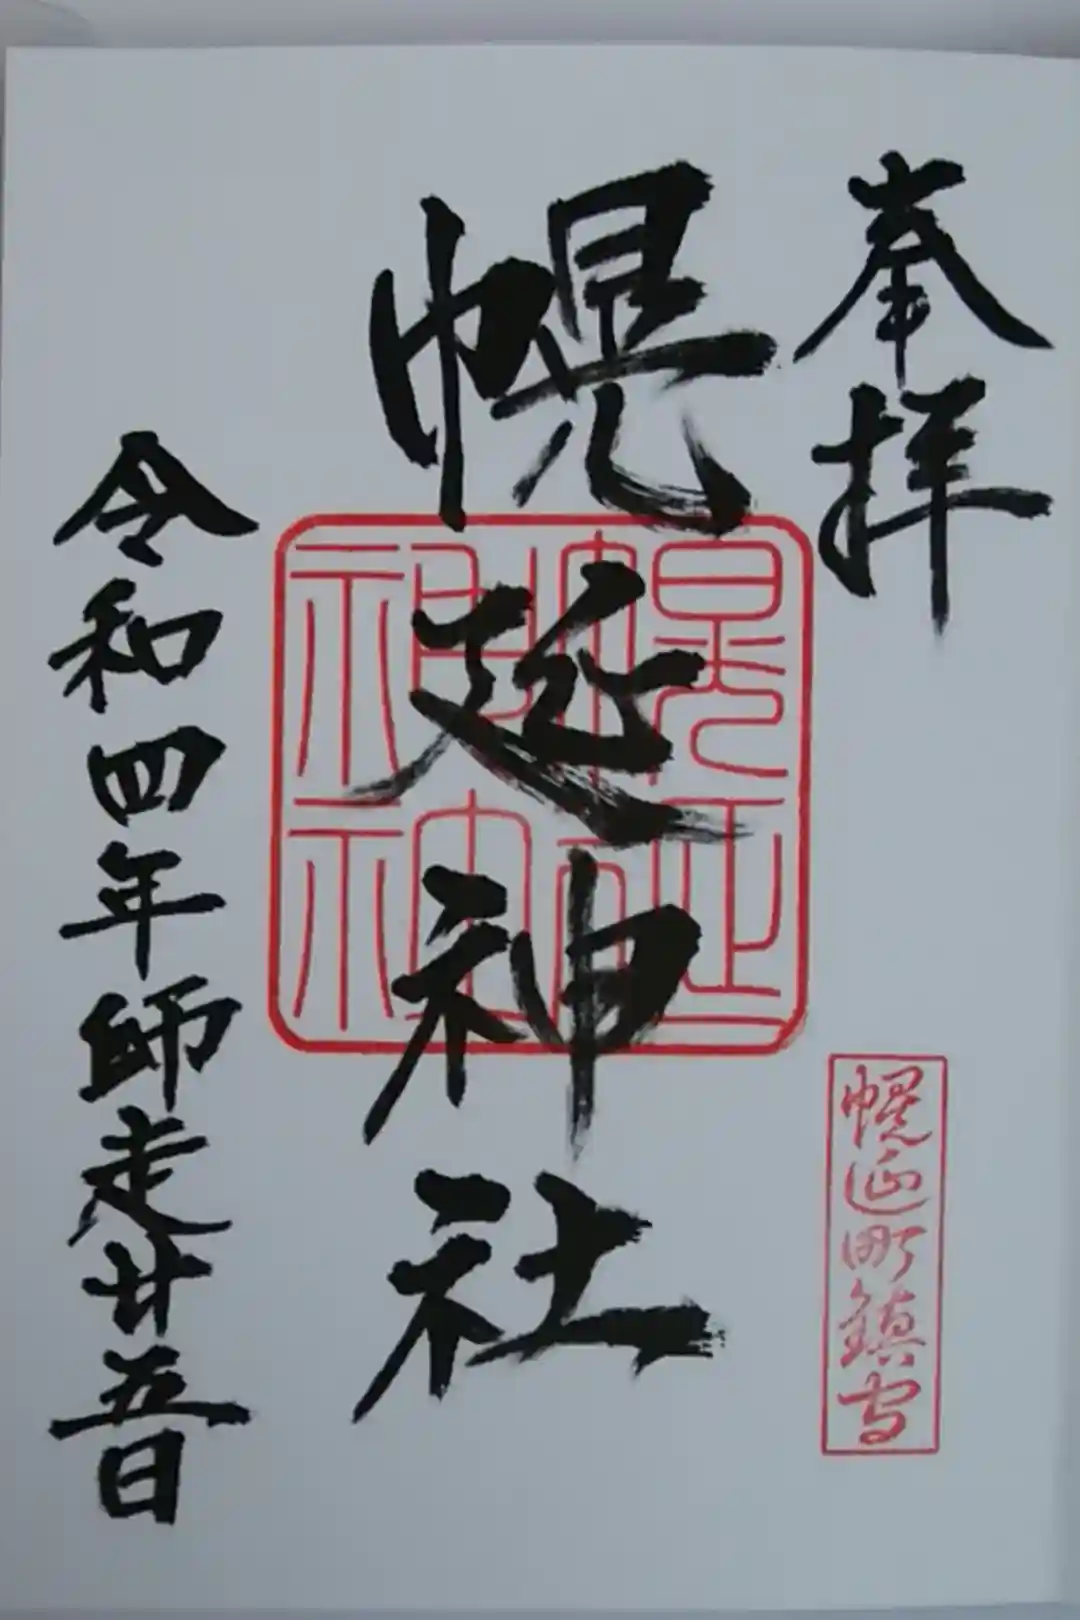 奉拝
幌延町鎮守
幌延神社
幌延
神社
令和四年師走廿五日